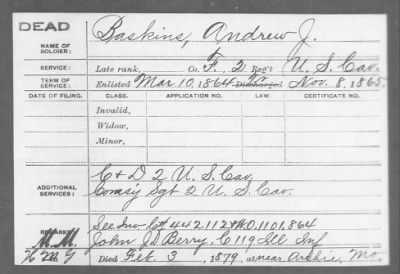 DEAD
NAME OF SOLDIER: Baskins, Andrew J.
SERVICE: Late rank, Co. F, 2 Reg't U. S. Cav.
TERM OF SERVICE: Enlisted Mar 10, 1864 Discharged Nov. 8, 1865
DATE OF FILING. CLASS. APPLICATION NO. LAW. CERTIFICATE NO.
Invalid,
Widow,
Minor,
ADDITIONAL SERVICES: C & D 2 U. S. Cav.
Comsy Sgt 2 U. S. Cav.
REMARKS: See Inv Ctf 442.112 & W.O. 1101.864
John J. Berry, C 119 Ill Inf
Died Feb. 3, 1879, at near Archie, Mo.